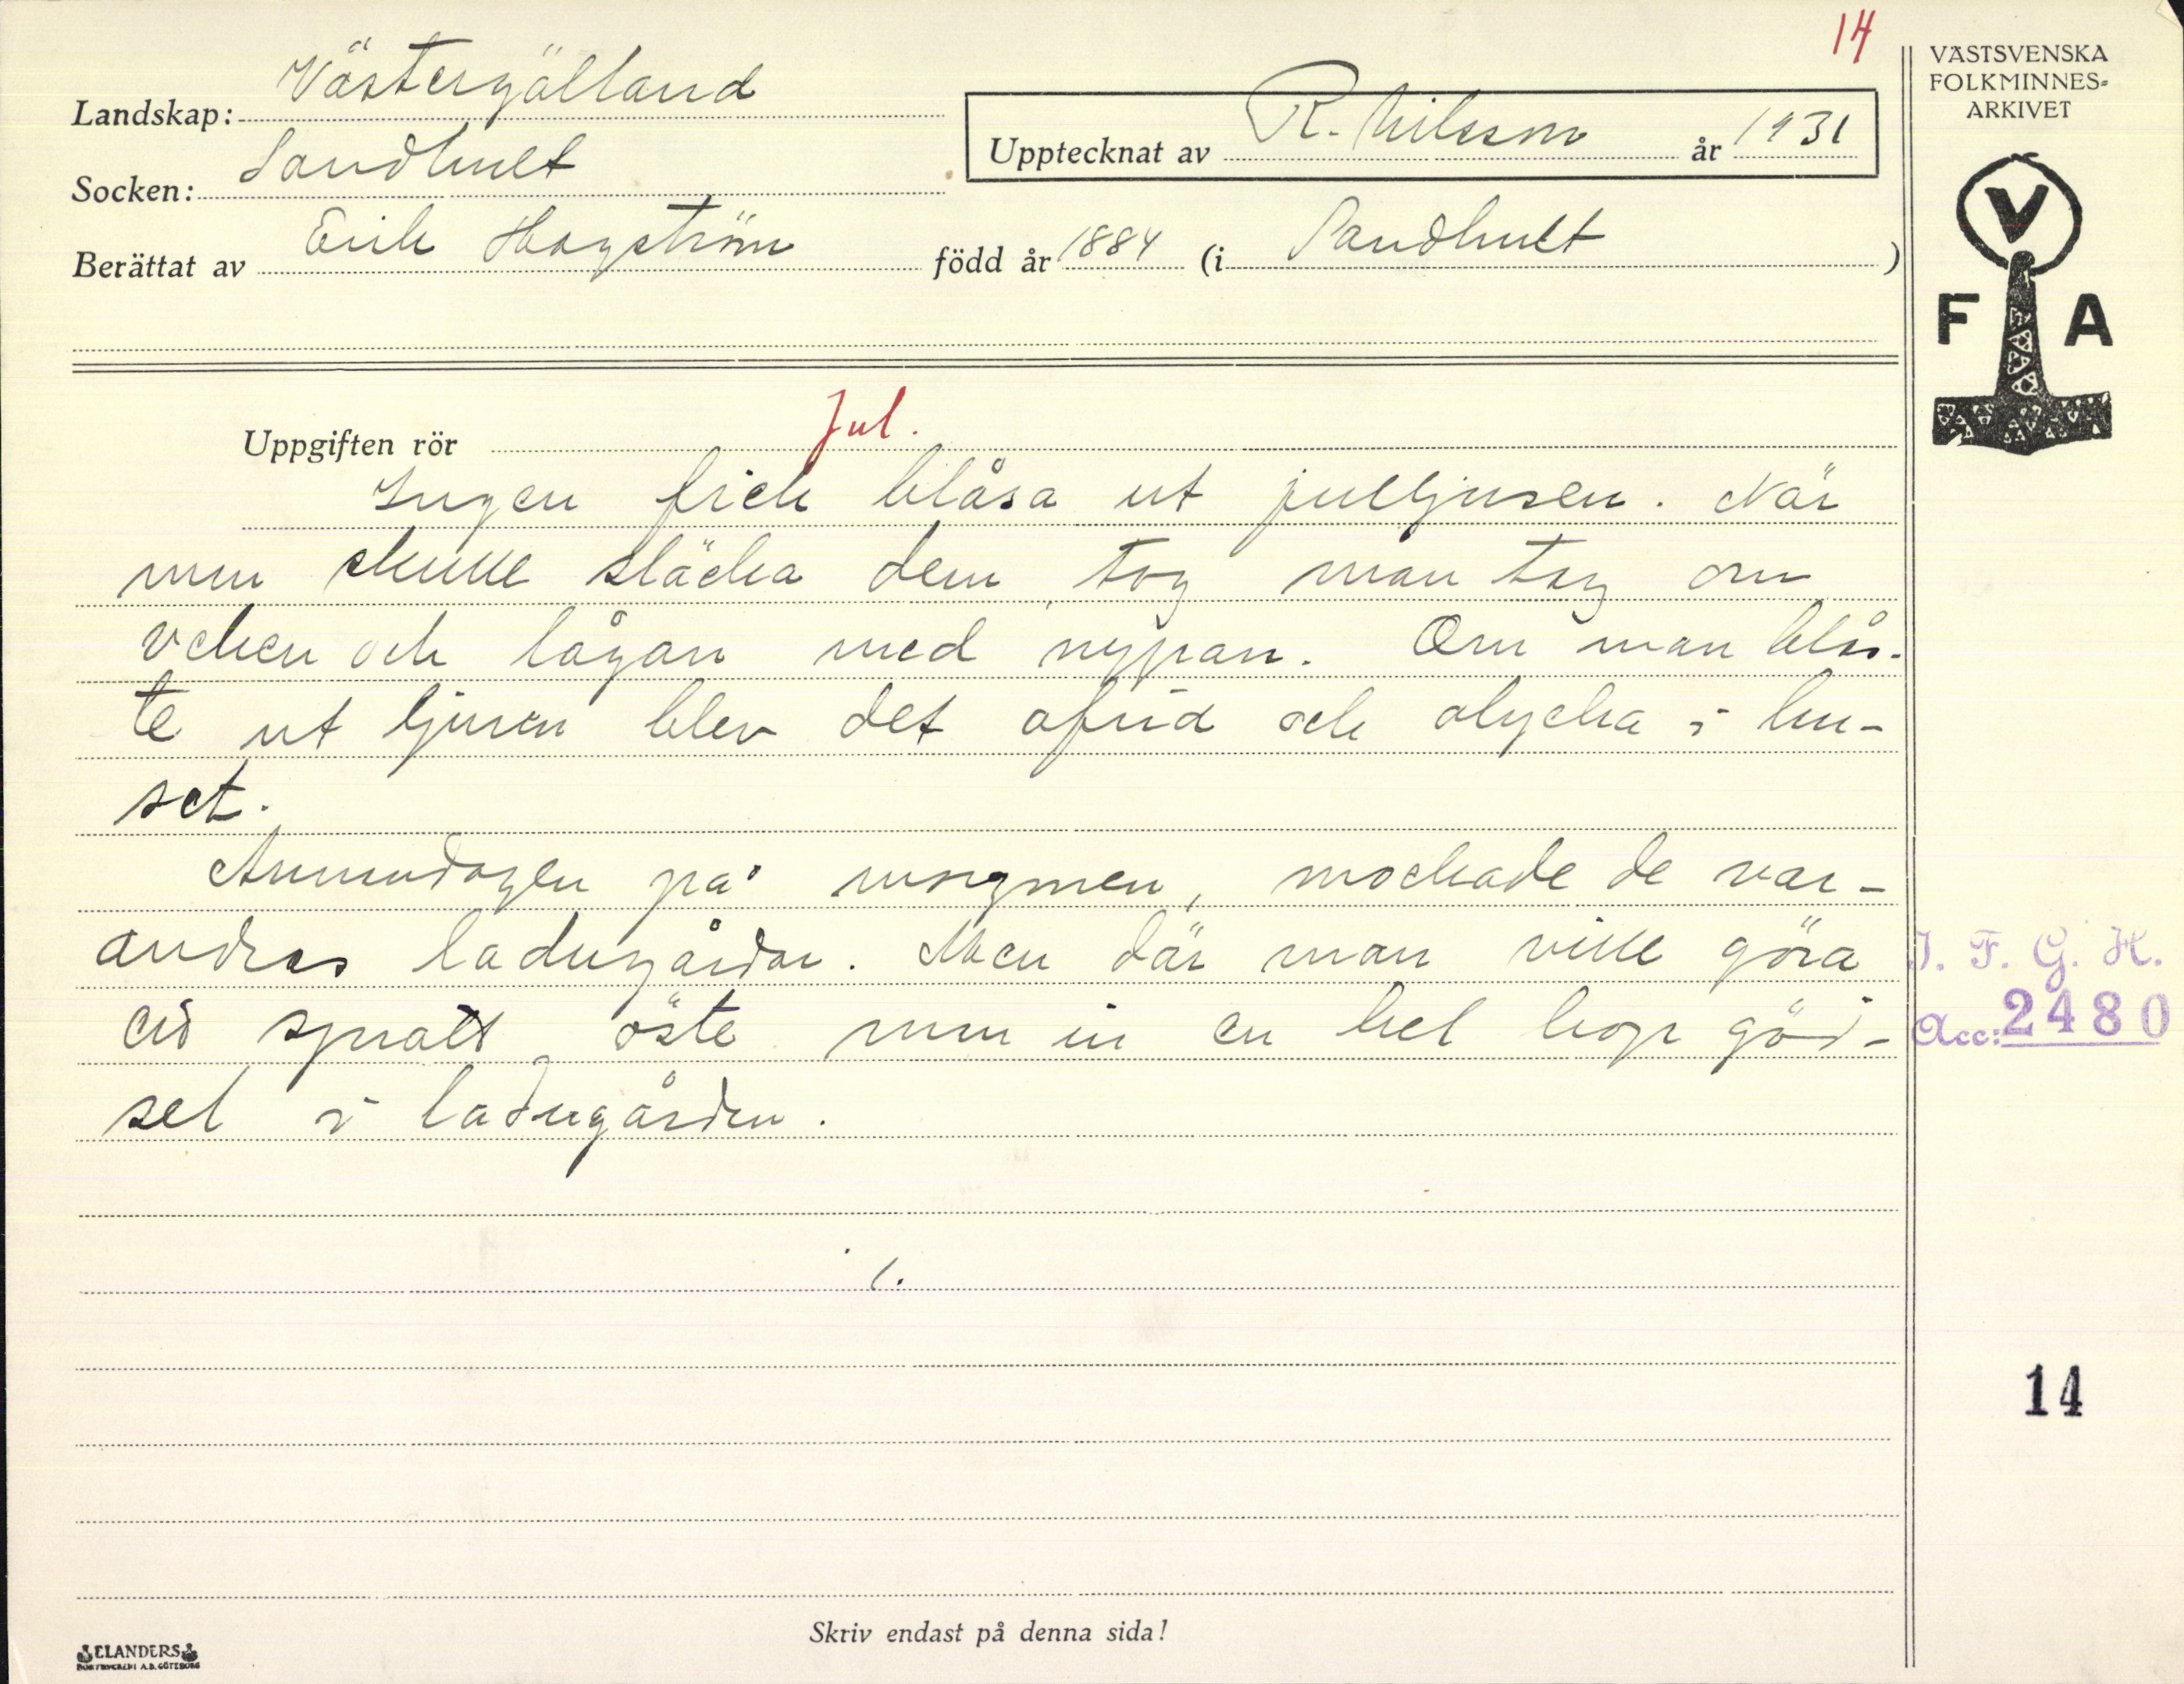 14
VÄSTSVENSKA
FOLKMINNES-
ARKIVET
Landskap: Västergötland
Upptecknat av R. Nilsson år 1931
Socken: Sandhult
Berättat av Erik Hagström född år 1884 (i Sandhult)
V
F A
Uppgiften rör Jul.
Ingen fick blåsa ut julljusen. När
man skulle släcka dem, tog man tag om
veken och lågan med nypan. Om man blås-
te ut ljusen blev det ofrid och olycka i hu-
set.
Annandagen på morgonen, mockade de var-
andras ladugårdar. Men där man ville göra
ett spratt, öste man in en hel hop göd-
sel i ladugården.
I. F. G. H.
Acc: 2480
14
Skriv endast på denna sida!
ELANDERS
BOKTRYCKERI A.B. GÖTEBORG